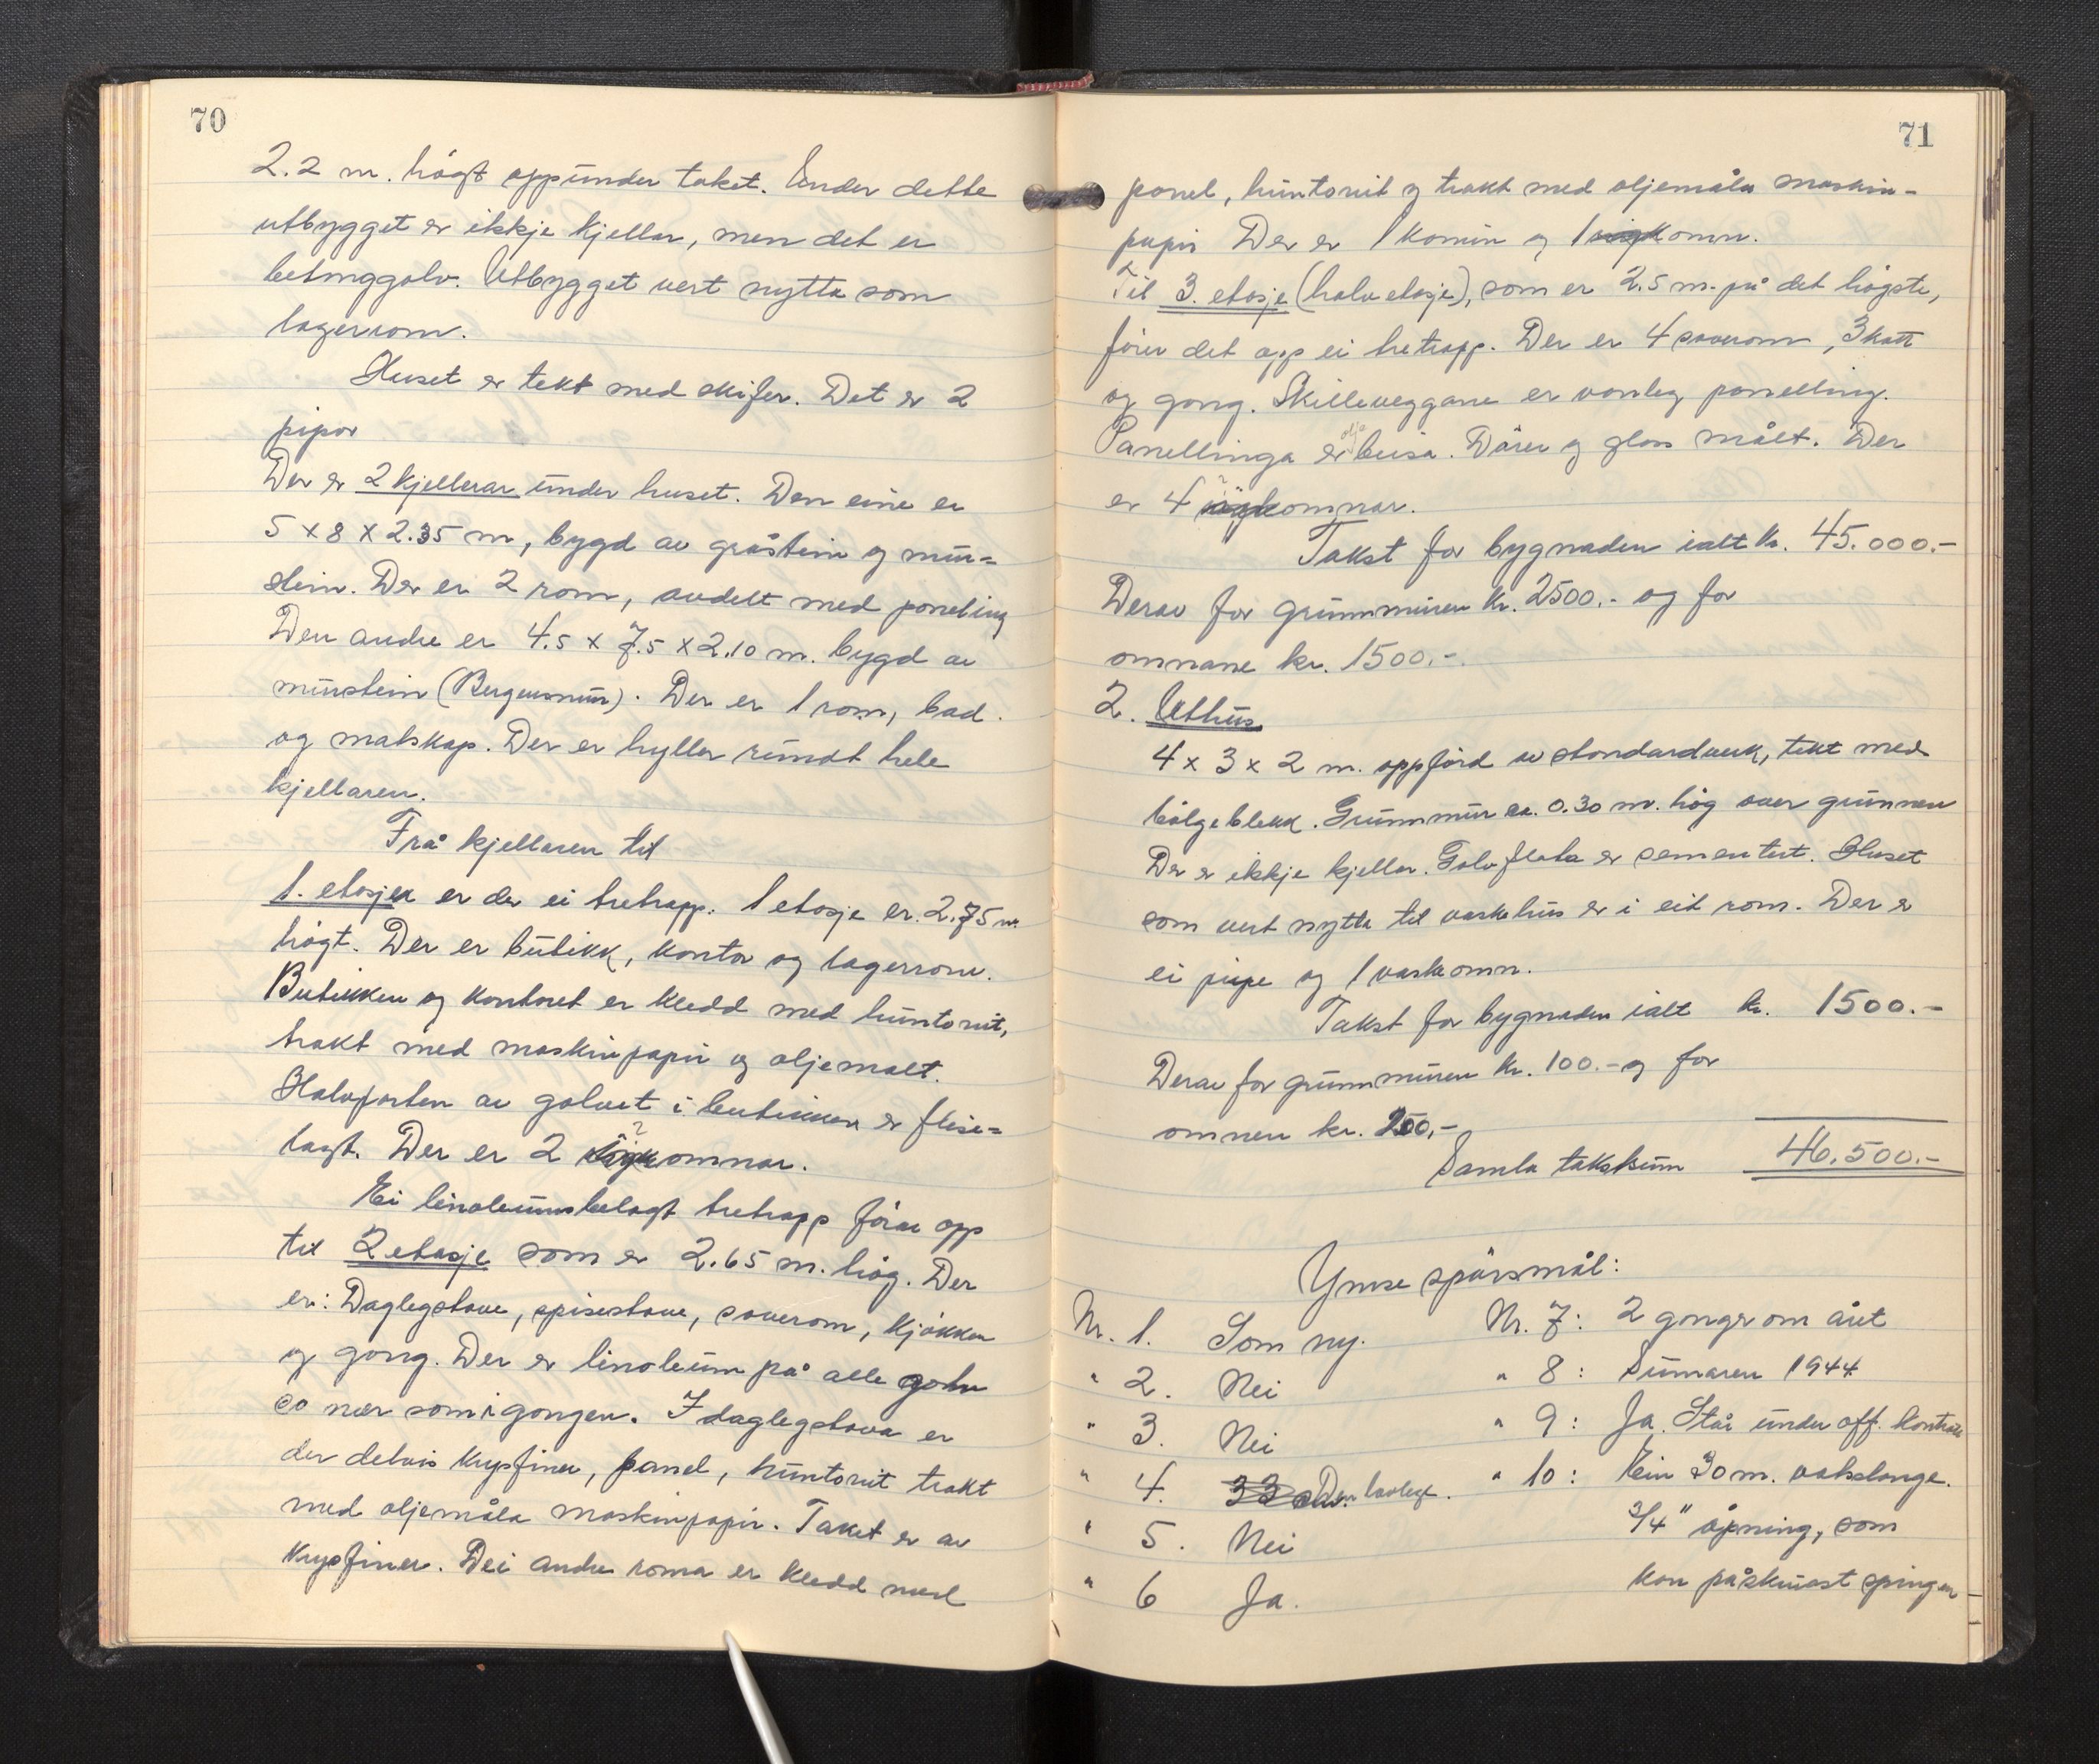 70
2.2 m. högt oppunder taket. Under dette
utbygget er ikkje kjellar, men det er
betonggolv. Utbygget vert nytta som
lagerrom.
Huset er tekt med skifer. Det er 2
pipor
Der er 2 kjellerar under huset. Den eine er
5 x 8 x 2.35 m, bygd av gråstein og mur=
stein. Der er 2 rom, avdelt med paneling
Den andre er 4.5 x 7.5 x 2.10 m. bygd av
murstein (Bergensmur). Der er 1 rom, bad
og matskap. Der er hyller rundt hele
kjellaren.
Frå kjellaren til
1. etasjen er der ei tretrapp. 1 etasje er 2.75 m
högt. Der er butikk, kontor og lagerrom.
Butikken og kontoret er kledd med huntonit,
trakt med maskinpapir og oljemalt.
Halvparten av golvet i butikken er flise=
lagt. Der er 2 omnar.
Ei linoleumsbelagt tretrapp förar opp
til 2 etasje som er 2.65 m. hög. Der
er: Daglegstove, spisestove, soverom, kjökken
og gong. Der er linoleum på alle golv
so nær som i gongen. I daglegstova er
der delvis krysfiner, panel, huntonit trakt
med oljemåla maskinpapir. Taket er av
krysfiner. Dei andre roma er kledd med
71
panel, huntonit og trakt med oljemåla maskin-
papir Der er 1 komin og 1 omn.
Til 3. etasje (halv etasje), som er 2.5 m. på det högste,
förer det opp ei tretrapp. Der er 4 soverom, 3 kott
og gong. Skilleveggane er vanleg panelling.
Panellinga er olje beisa. Dörer og glas målt. Der
er 4 omnar.
Takst for bygnaden ialt kr. 45.000.-
Derav for grunnmuren kr. 2500.- og for
omnane kr. 1500.-
2. Uthus
4 x 3 x 2 m. oppförd av standardverk, tekt med
bölgeblekk. Grunnmur ca. 0.30 m. hög over grunnen
Der er ikkje kjellar. Golvflata er sementert. Huset
som vert nytta til vaskehus er i eit rom. Der er
ei pipe og 1 vaskeomn.
Takst for bygnaden ialt kr. 1500.-
Derav for grunnmuren kr. 100.- og for
omnen kr. 200.-
Samla takstsum 46.500.-
Ymse spörsmål:
Nr. 1. Som ny. Nr. 7: 2 gonger om året
" 2. Nei " 8: Sumaren 1944
" 3. Nei " 9: Ja. Står under off. kontroll
" 4. " 10: Ein 30 m. vatslange.
" 5. Nei 3/4" åpning, som
" 6 Ja. kan påskruast springen